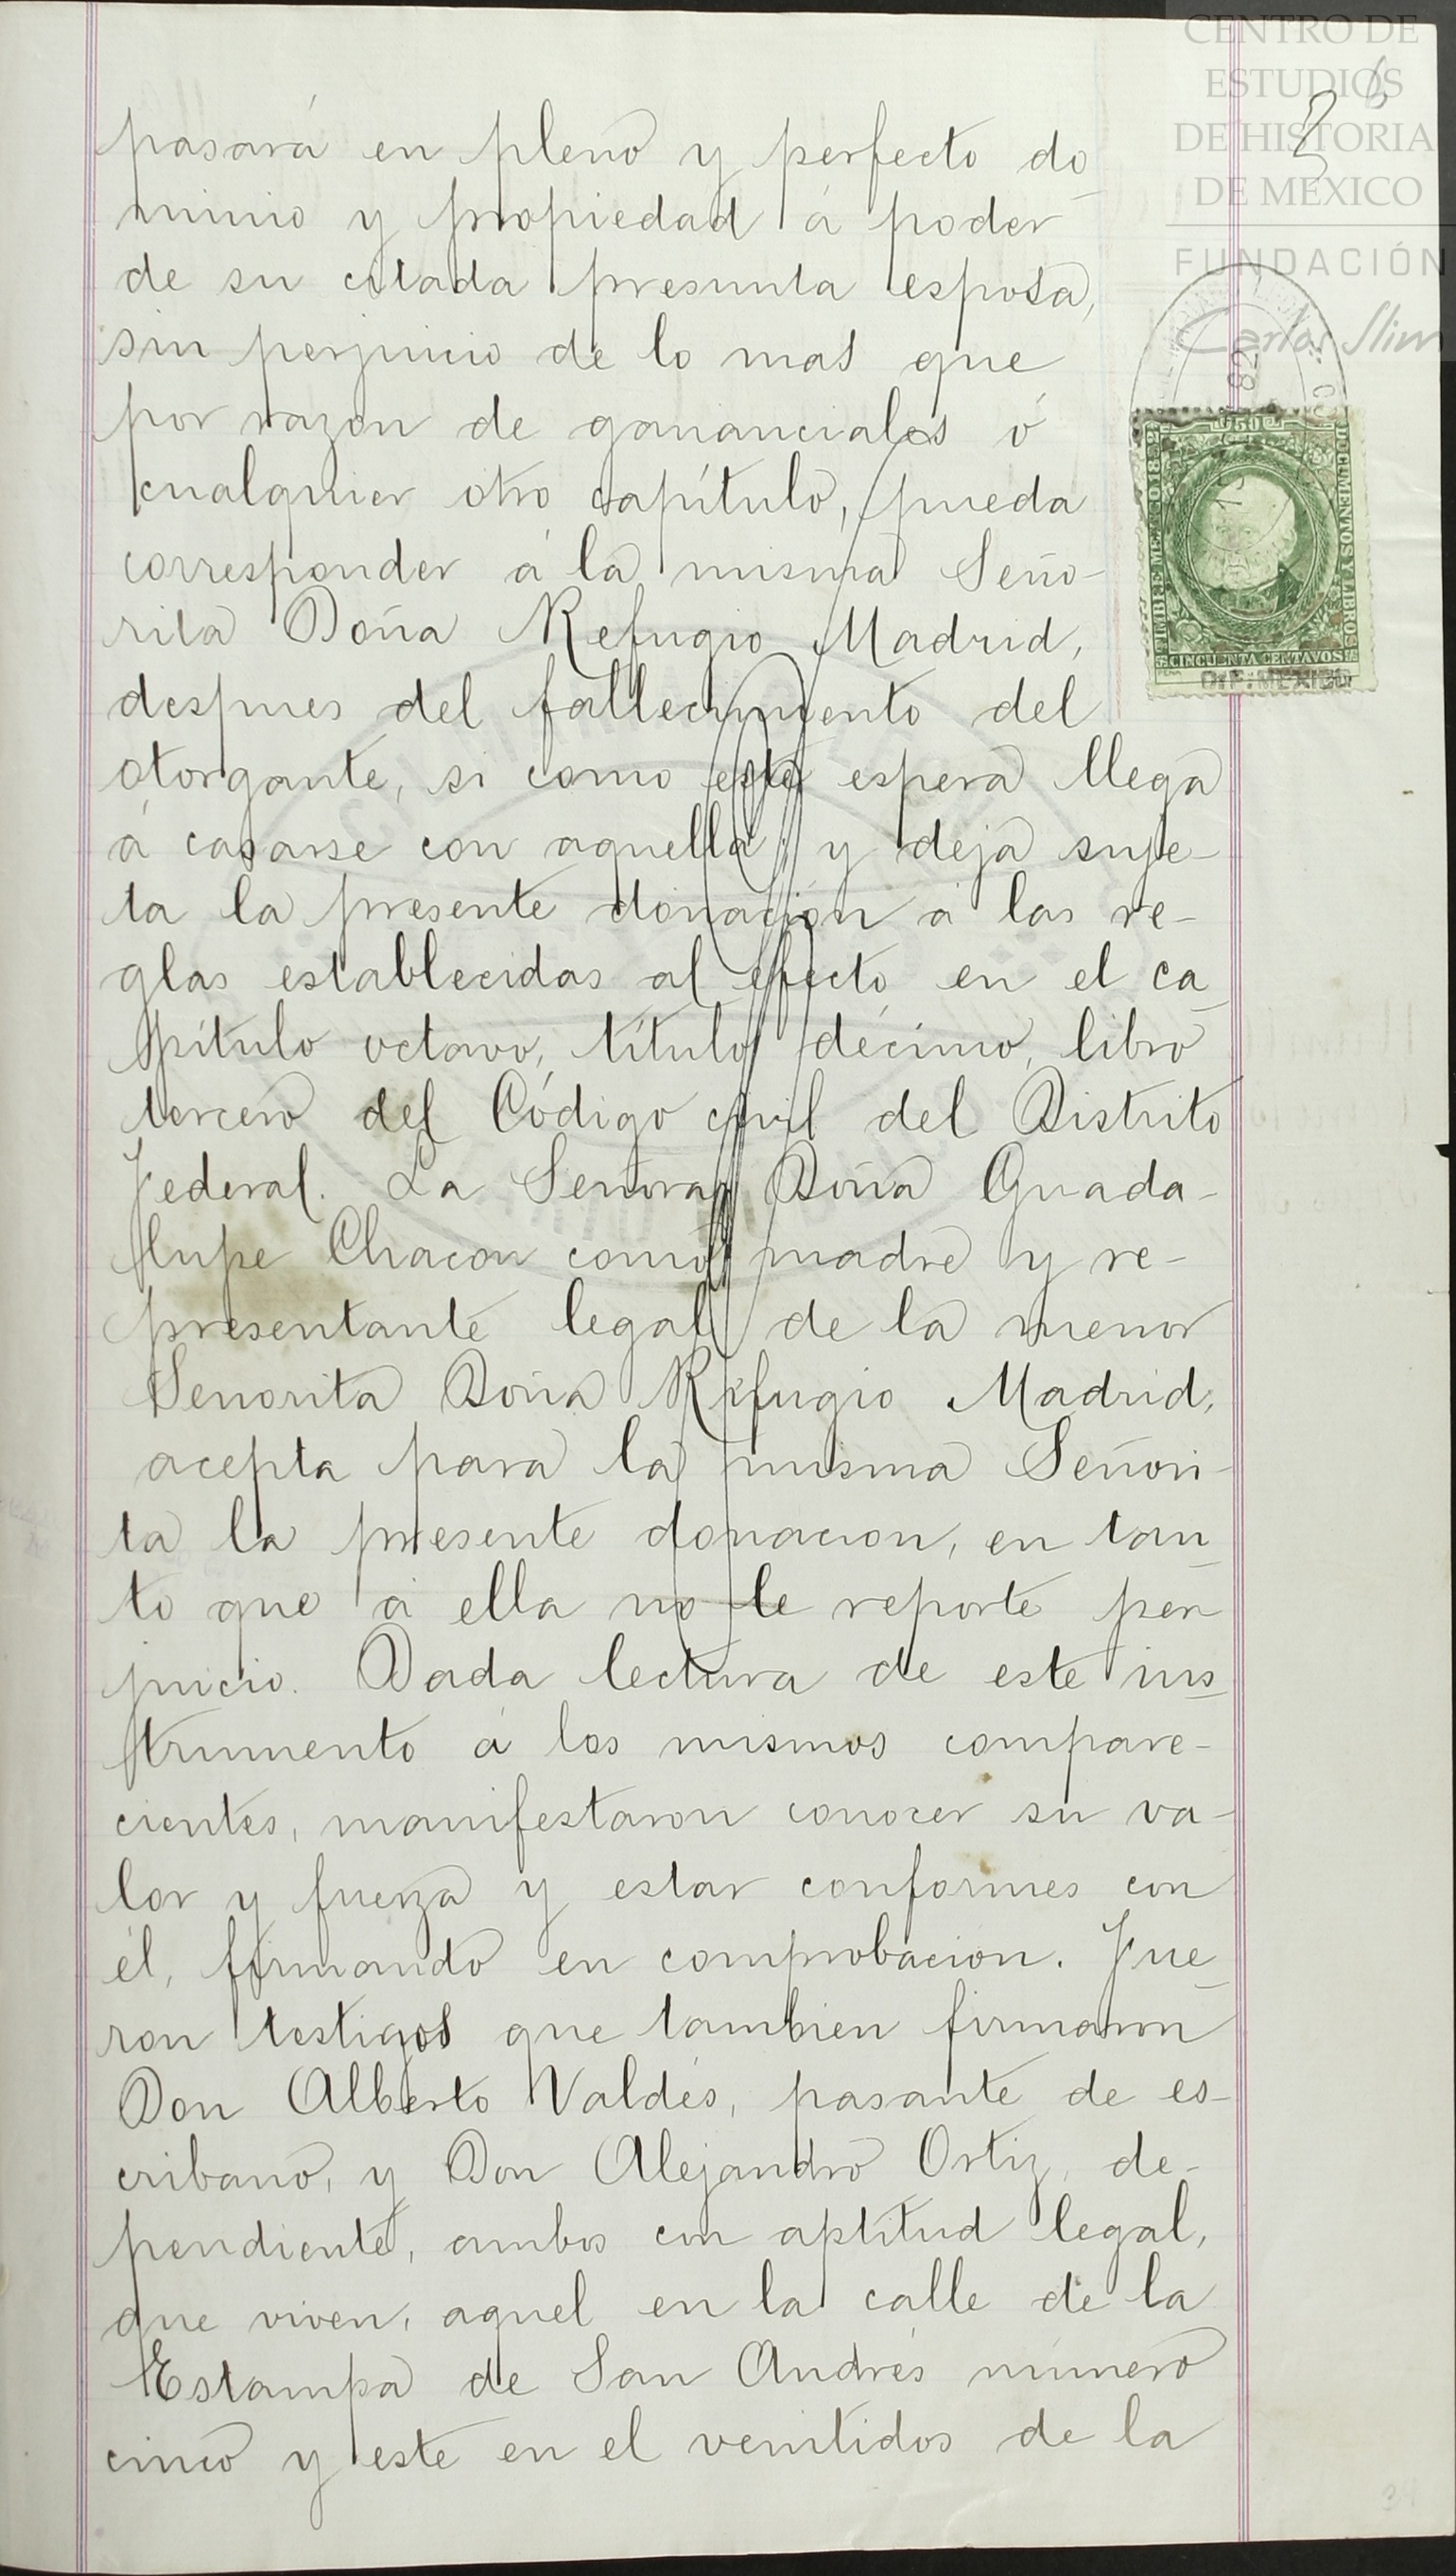 CENTRO DE
ESTUDIOS
DE HISTORIA
DE MEXICO
FUNDACIÓN
Carlos Slim
pasará en pleno y perfecto do
minio y propiedad á poder
de su citada presunta esposa,
sin perjuicio de lo mas que
por razon de gananciales ó
cualquier otro capítulo, pueda
corresponder á la misma Seño-
rita Doña Refugio Madrid,
despues del fallecimiento del
otorgante, si como este espera llega
á casarse con aquella; y deja suje-
ta la presente donación á las re-
glas establecidas al efecto en el ca
pítulo octavo, título décimo, libro
tercero del Código civil del Distrito
Federal. La Señora Doña Guada-
lupe Chacon como madre y re-
presentante legal de la menor
Señorita Doña Refugio Madrid,
acepta para la misma Señori-
ta la presente donacion, en tan
to que á ella no le reporte per
juicio. Dada lectura de este ins
trumento á los mismos compare-
cientes, manifestaron conocer su va-
lor y fuerza y estar conformes con
él, firmando en comprobacion. Fue
ron testigos que tambien firmaron
Don Alberto Valdés, pasante de es-
cribano, y Don Alejandro Ortiz, de-
pendiente, ambos con aptitud legal,
que viven, aquel en la calle de la
Estampa de San Andrés número
cinco y este en el veintidos de la
50
TIMBRE MEXICO 1882
DOCUMENTOS Y LIBROS
CINCUENTA CENTAVOS
D.F. MEXICO